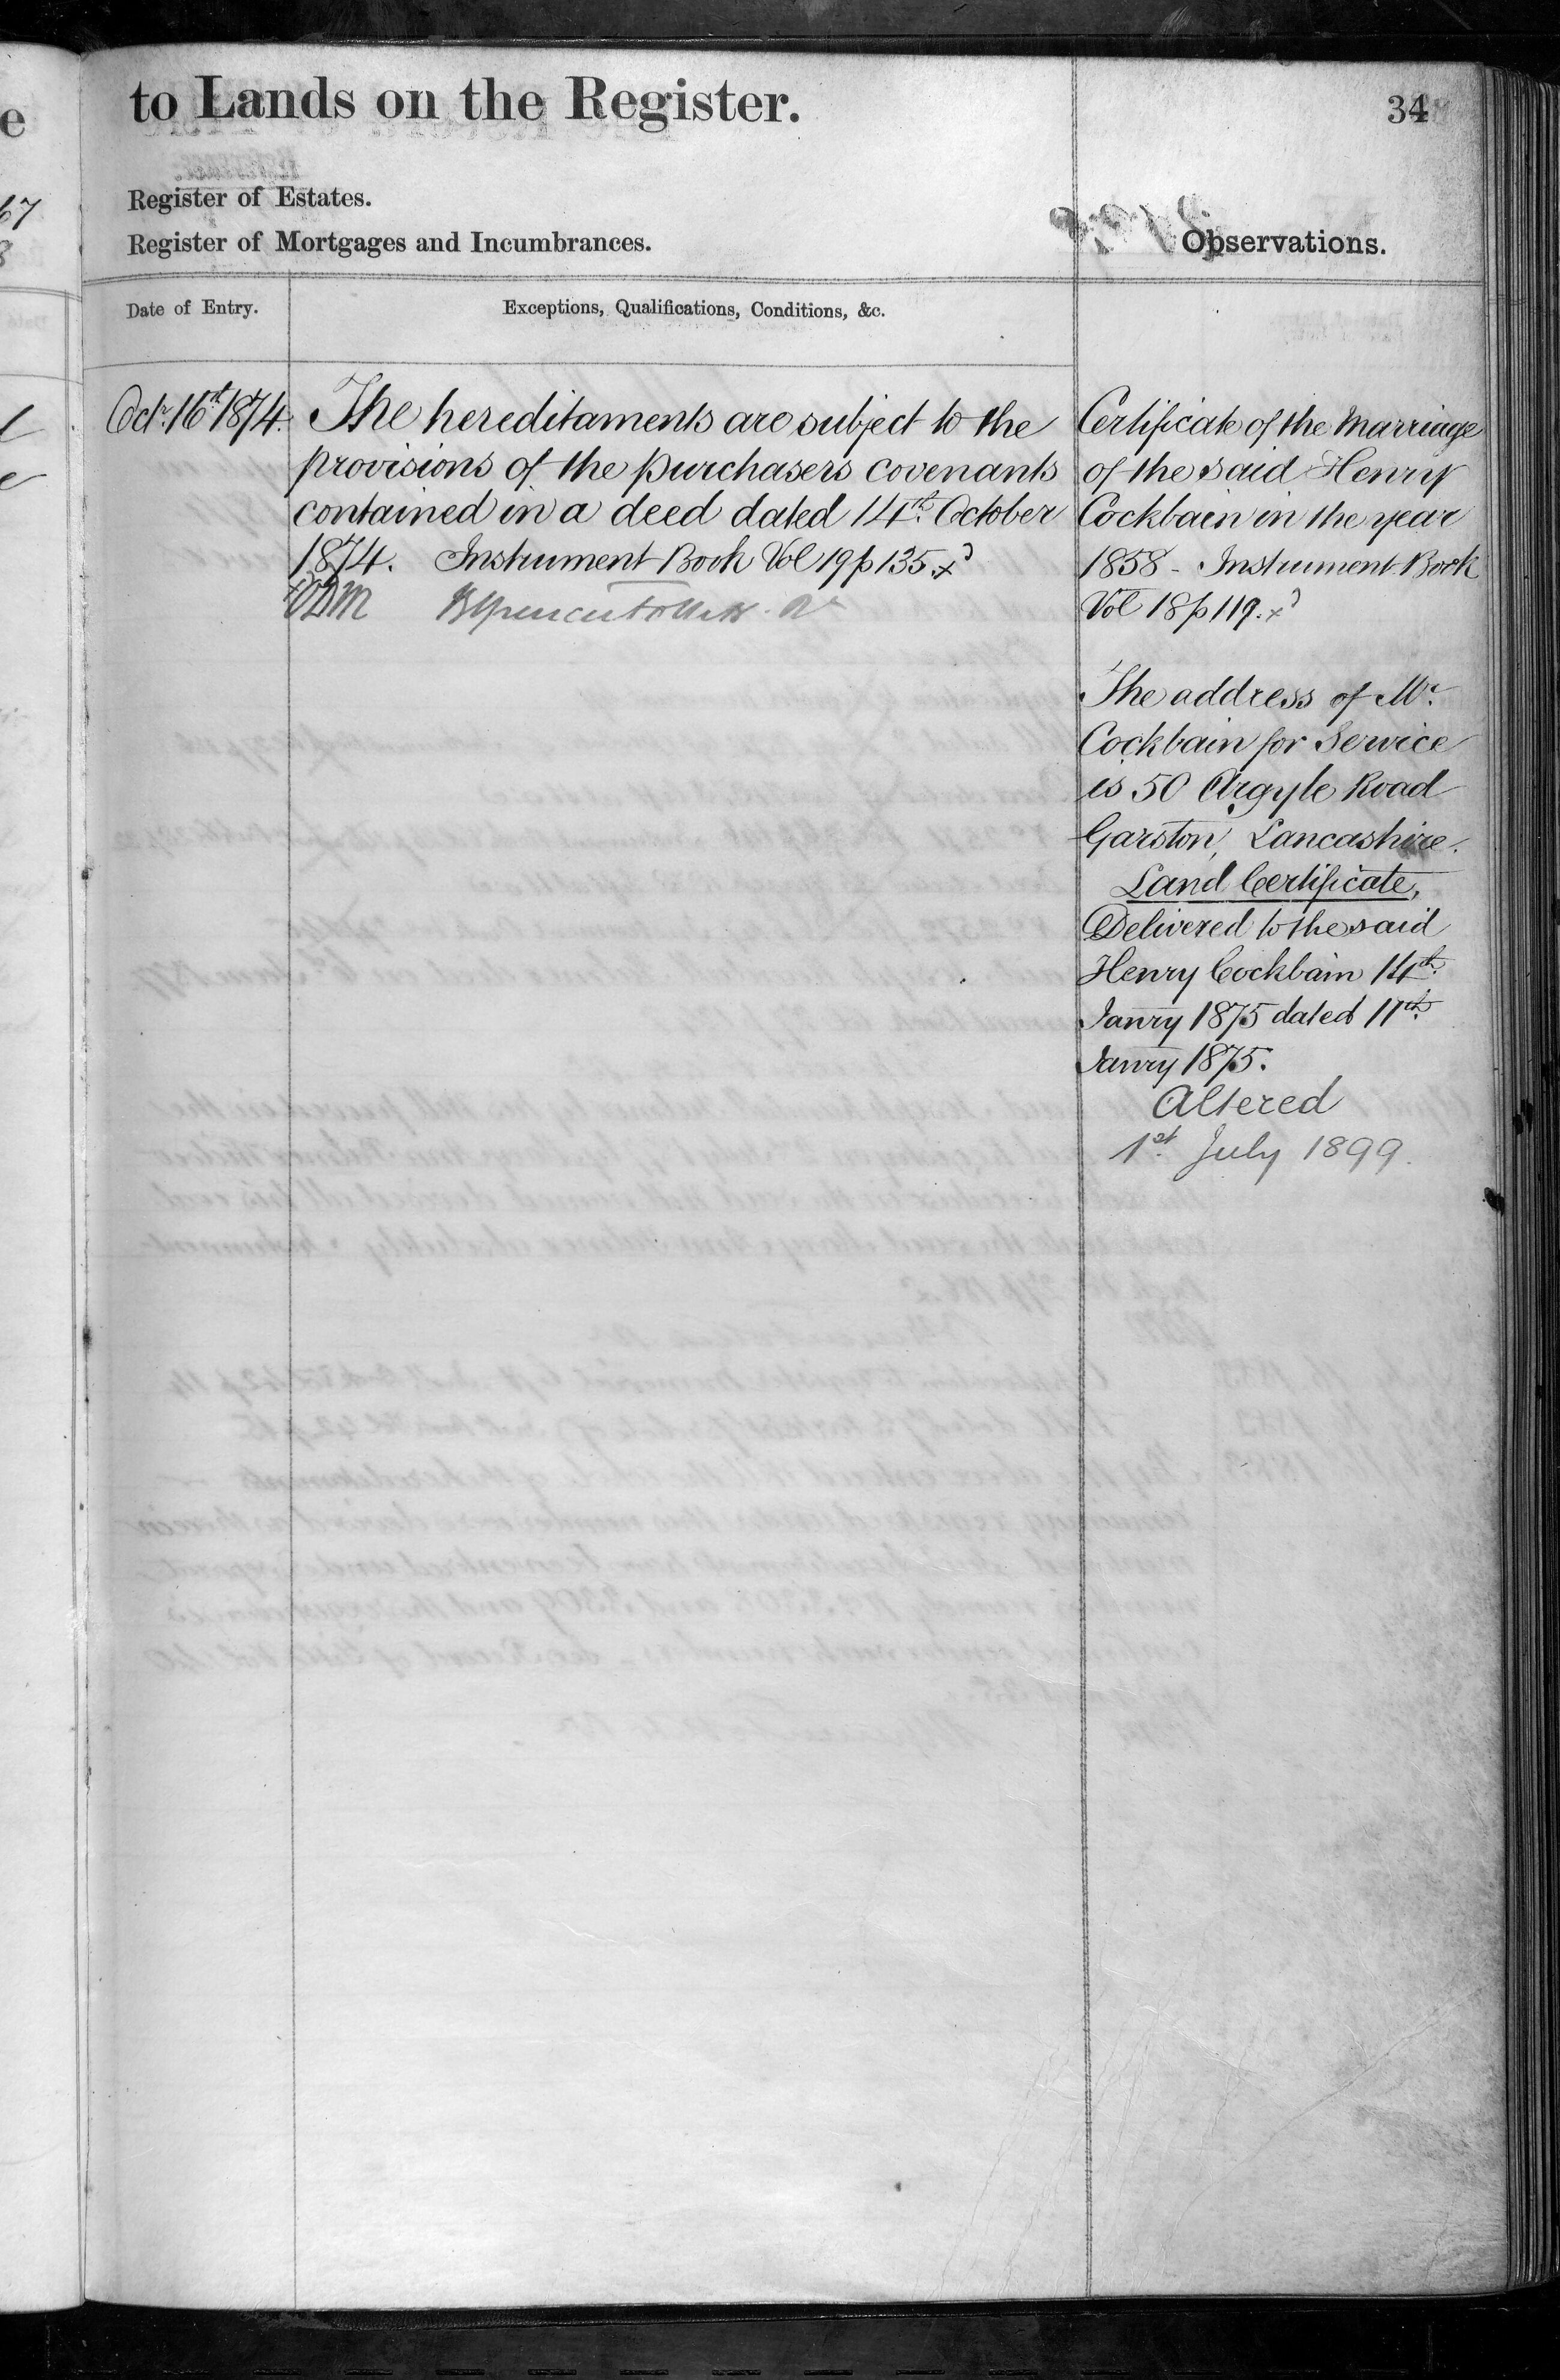 to Lands on the Register.
34
Register of Estates.
Register of Mortgages and Incumbrances.
Observations.
Date of Entry.
Exceptions, Qualifications, Conditions, &c.
Octr. 16th 1874.
The hereditaments are subject to the
provisions of the purchasers covenants
contained in a deed dated 14th October
1874. Instrument Book Vol 19 p 135. x
Certificate of the Marriage
of the said Henry
Cockbain in the year
1858 - Instrument Book
Vol 18 p 119. x
The address of Mr.
Cockbain for Service
is 50 Argyle Road
Garston, Lancashire.
Land Certificate,
Delivered to the said
Henry Cockbain 14th
Janry 1875 dated 11th
Janry 1875.
Altered
1st July 1899.